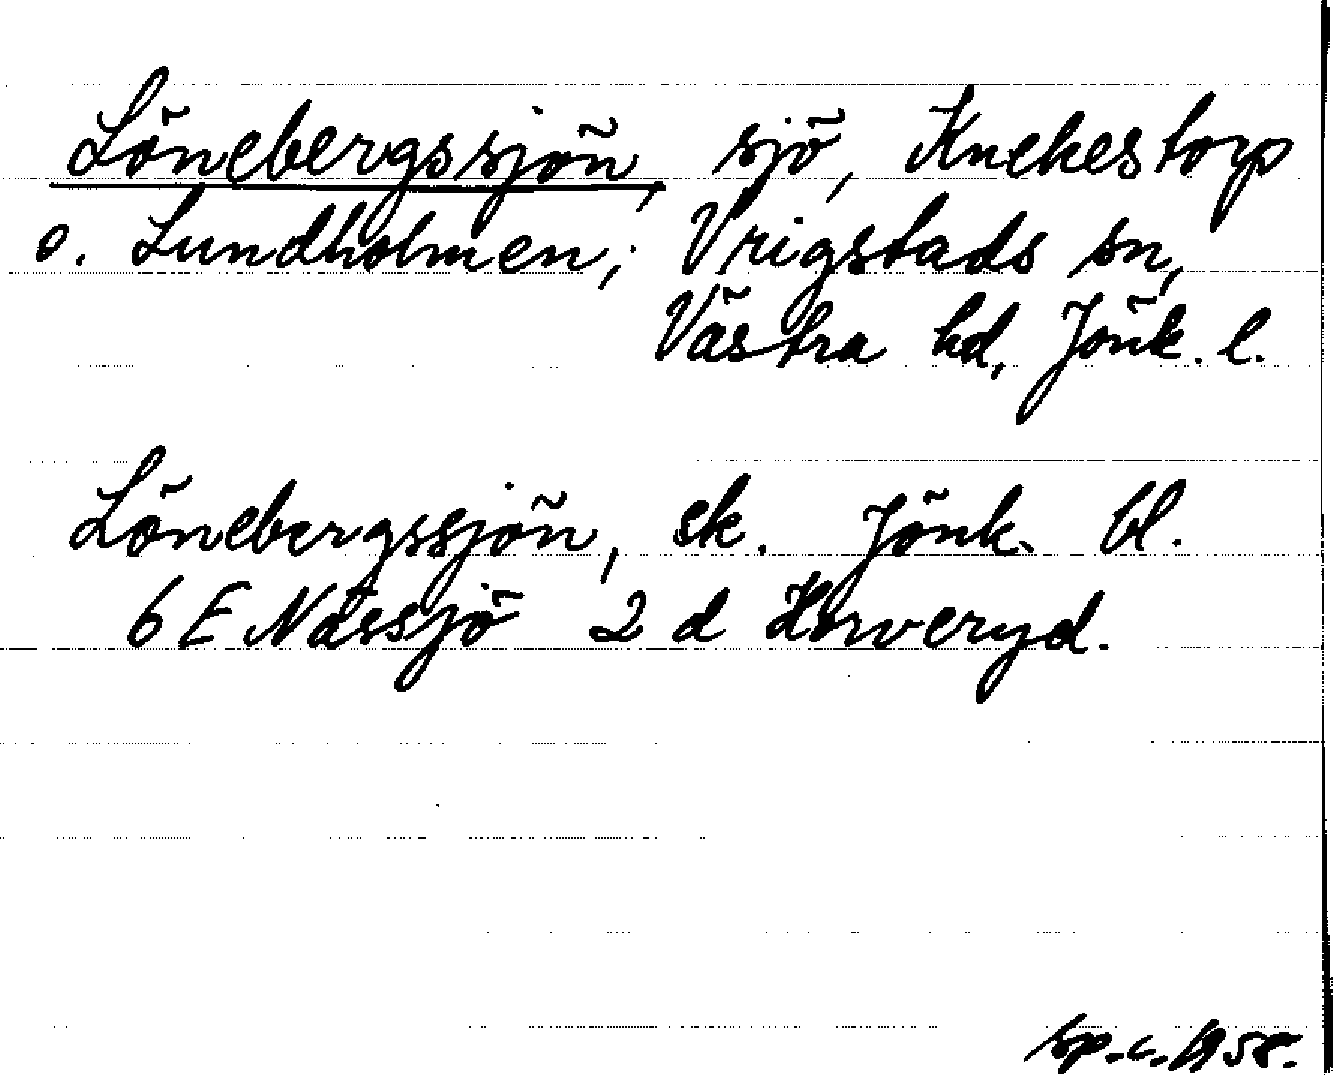 Lönebergssjön, sjö, Knekestorp
o. Lundholmen; Vrigstads sn,
Västra hd, Jönk. l.
Lönebergssjön, ek. Jönk. bl.
6 E Nässjö 2 d Horveryd.
1958.